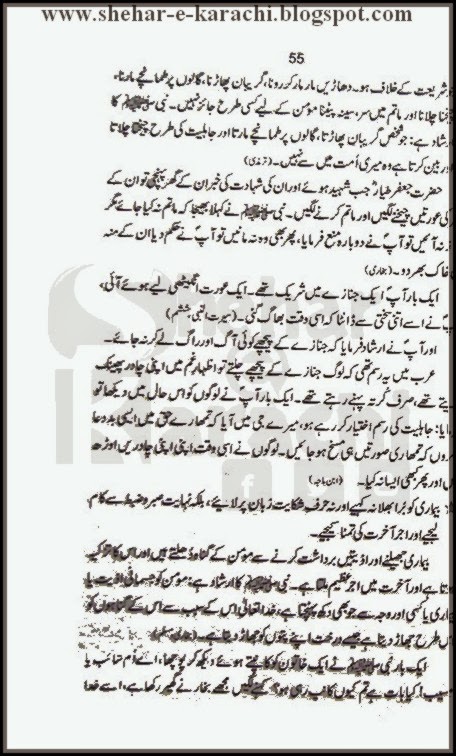 www.shehar-e-karachi.blogspot.com
55
جو شریعت کے خلاف ہو۔ دھاڑیں مار مار کر رونا، گریبان پھاڑنا، گالوں پر طمانچے مارنا،
چیخنا چلانا اور ماتم میں سر، سینہ پیٹنا مومن کے لیے کسی طرح جائز نہیں۔ نبی ﷺ کا
ارشاد ہے: جو شخص گریبان پھاڑتا، گالوں پر طمانچے مارتا اور جاہلیت کی طرح چیختا چلاتا
اور بین کرتا ہے وہ میری اُمت میں سے نہیں۔ (ترمذی)
حضرت جعفر طیارؓ جب شہید ہوئے اور ان کی شہادت کی خبر ان کے گھر پہنچی تو ان کے
کی عورتیں چیخنے لگیں اور ماتم کرنے لگیں۔ نبی ﷺ نے کہلا بھیجا کہ ماتم نہ کیا جائے مگر
باز نہ آئیں تو آپؐ نے دوبارہ منع فرمایا، پھر بھی وہ نہ مانیں تو آپؐ نے حکم دیا ان کے منہ
خاک بھر دو۔ (بخاری)
ایک بار آپؐ ایک جنازے میں شریک تھے۔ ایک عورت انگیٹھی لیے ہوئے آئی،
آپؐ نے اسے اتنی سختی سے ڈانٹا کہ اسی وقت بھاگ گئی۔ (سیرت النبی ششم)
اور آپؐ نے ارشاد فرمایا کہ جنازے کے پیچھے کوئی آگ اور راگ لے کر نہ جائے۔
عرب میں یہ رسم تھی کہ لوگ جنازے کے پیچھے چلتے تو اظہارِ غم میں اپنی چادر پھینک
دیتے تھے، صرف کرتہ پہنے رہتے تھے۔ ایک بار آپؐ نے لوگوں کو اس حال میں دیکھا تو
فرمایا: جاہلیت کی رسم اختیار کر رہے ہو، میرے جی میں آیا کہ تمھارے حق میں ایسی بددعا
کروں کہ تمھاری صورتیں ہی مسخ ہو جائیں۔ لوگوں نے اسی وقت اپنی اپنی چادریں اوڑھ
لیں اور پھر کبھی ایسا نہ کیا۔ (ابن ماجہ)
بیماری کو بُرا بھلا نہ کہیے اور نہ حرفِ شکایت زبان پر لائیے، بلکہ نہایت صبر و ضبط سے کام
لیجیے اور اجرِ آخرت کی تمنا کیجیے۔
بیماری جھیلنے اور اذیتیں برداشت کرنے سے مومن کے گناہ دھلتے ہیں اور اس کا تزکیہ
ہوتا ہے اور آخرت میں اجرِ عظیم ملتا ہے۔ نبی ﷺ کا ارشاد ہے: مومن کو جسمانی اذیت یا
بیماری یا کسی اور وجہ سے جو بھی دکھ پہنچتا ہے، خدا تعالیٰ اس کے سبب سے اس کے گناہوں کو
اس طرح جھاڑ دیتا ہے جیسے درخت اپنے پتوں کو جھاڑ دیتا ہے۔
ایک بار نبی ﷺ نے ایک خاتون کو کانپتے ہوئے دیکھ کر پوچھا، اے اُم سائب یا
مسیب! کیا بات ہے تم کیوں کانپ رہی ہو؟ کہنے لگیں مجھے بخار نے گھیر رکھا ہے، اسے خدا